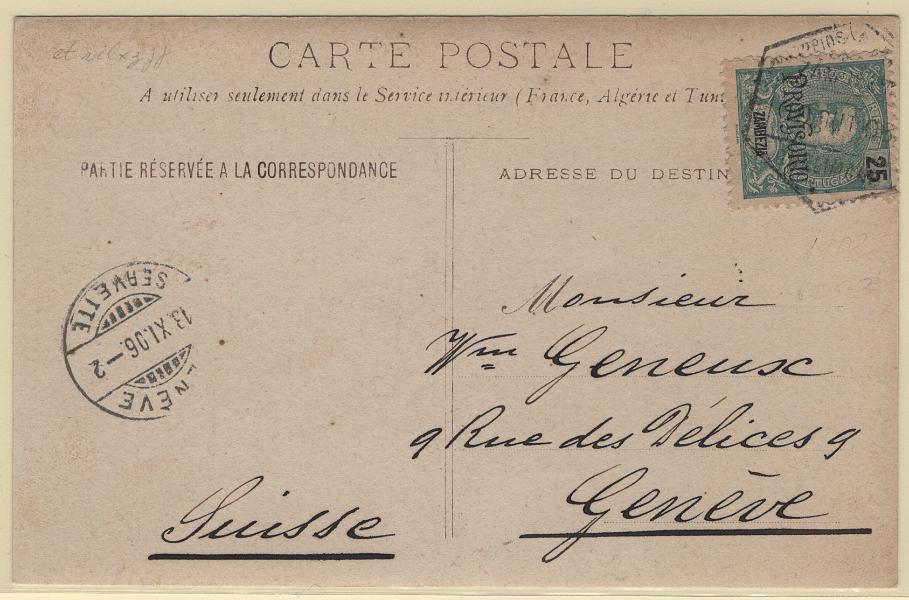 CARTE POSTALE
A utiliser seulement dans le Service intérieur (France, Algérie et Tun
PARTIE RÉSERVÉE A LA CORRESPONDANCE
ADRESSE DU DESTIN
PROVISORIO
ZAMBEZIA
25
SERVETTE
13.XI.06.-2
ENÈVE
Monsieur
Wm Geneux
9 Rue des Délices 9
Genève
Suisse